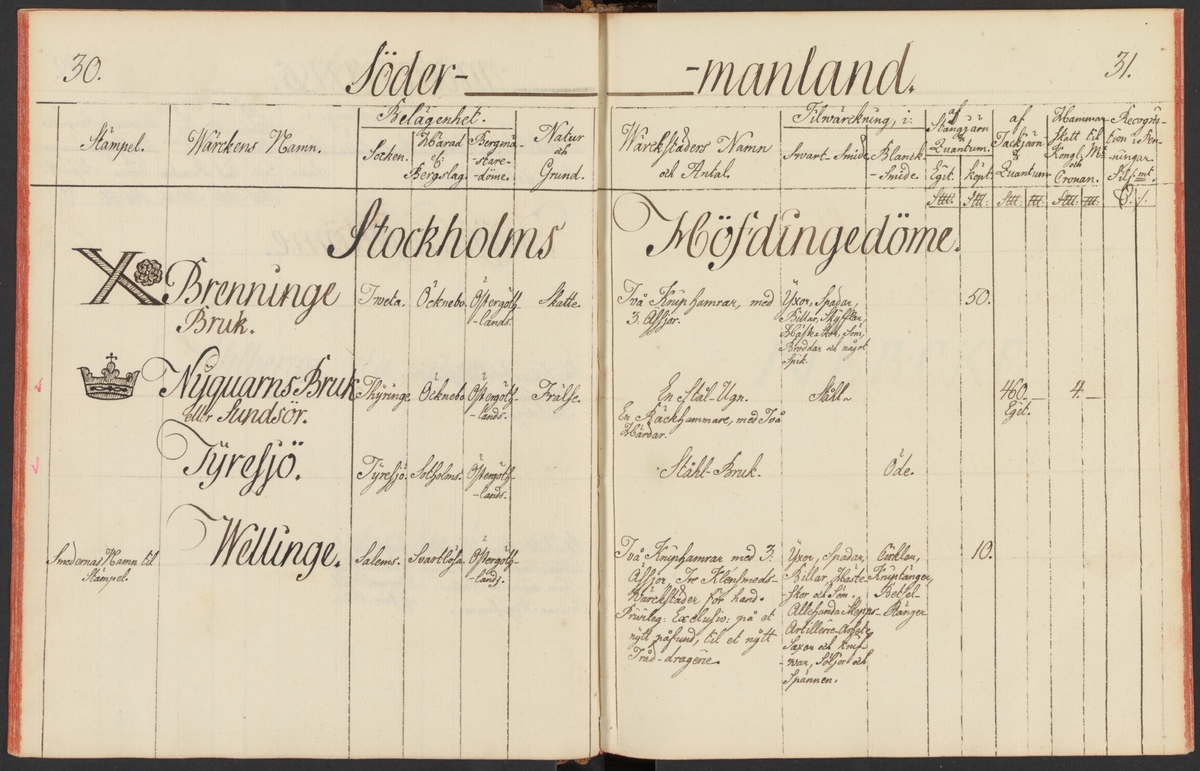 30.
Söder-
-manland.
31.
Stämpel.
Wärckens Namn.
Belägenhet.
Socken.
Härad
el:
Bergslag.
Bergmä-
-stare-
döme.
Natur
och
Grund.
Wärckstäders Namn
och Antal.
Tilwärckning, i:
Swart-Smide
Blanck-
-Smide.
af
Stångjärn
Quantum.
Egit.
köpt.
af
Tackjärn
Quantum
Hammar
Skatt til
Kongl. Mt.
och
Cronan.
Recogni-
tion Pen-
ningar
Silf. mt.
Stockholms
Höfdingedöme.
Brenninge
Bruk.
Tweta.
Öcknebo.
Östergöth-
-lands.
Skatte.
Två Kniphamrar, med
3. Ässjor.
Yxor, Spadar,
Billar, Skyfflar,
Häste Skor, Söm,
Broddar och något
Spik.
50.
Nyquarns Bruk
eller Sundsör.
Thyringe.
Öcknebo.
Östergöth-
-lands.
Frälse.
En Stål-Ugn.
En Räckhammare, med Två
Härdar.
Stahl
460.
Egit.
4.
Tyresjö.
Tyresjö.
Sotholms.
Östergöth-
-lands.
Ståhl-Bruk.
Öde.
Smedernas Namn til
Stämpel.
Wellinge.
Salems.
Svartlösa.
Östergöth-
-lands.
Två Kniphamrar med 3.
Ässjor, Tre Klensmeds-
Wärckstäder för hand.
Privileg: Exclusiv: på et
nytt påfund, til et nytt
Tråd-dragerie.
Yxor, Spadar,
Billar, Häste-
-skor och Söm.
Allehanda Skepps-
Artillerie-Arbete,
Saxor och Knif-
-war, Söljor och
Spännen.
Cirklar,
Kniptänger,
Betsel-
-Stänger
10.